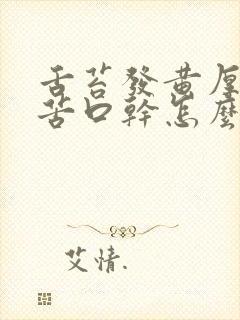 舌苔發黃厚
苦口幹怎麽
艾情.